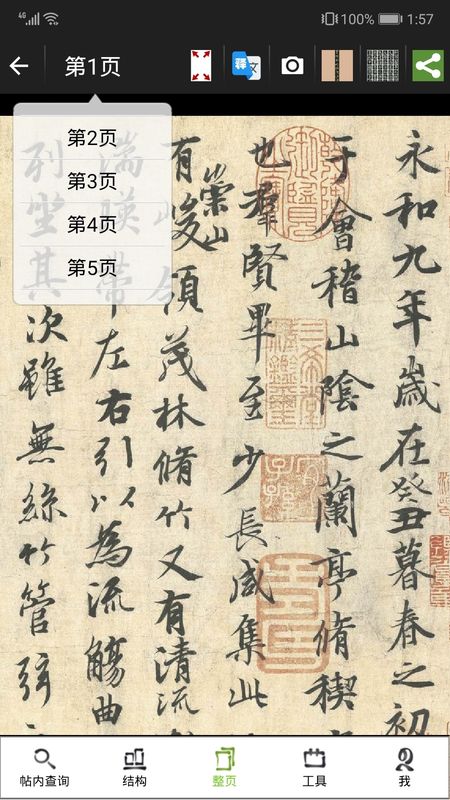 4G 100% 1:57
第1页
释文
第2页
第3页
第4页
第5页
永和九年歲在癸丑暮春之初
于會稽山陰之蘭亭脩稧
也羣賢畢至少長咸集此
有崇山峻領茂林脩竹又有清流
湍暎帶左右引以為流觴曲
列坐其次雖無絲竹管弦
帖内查询 结构 整页 工具 我